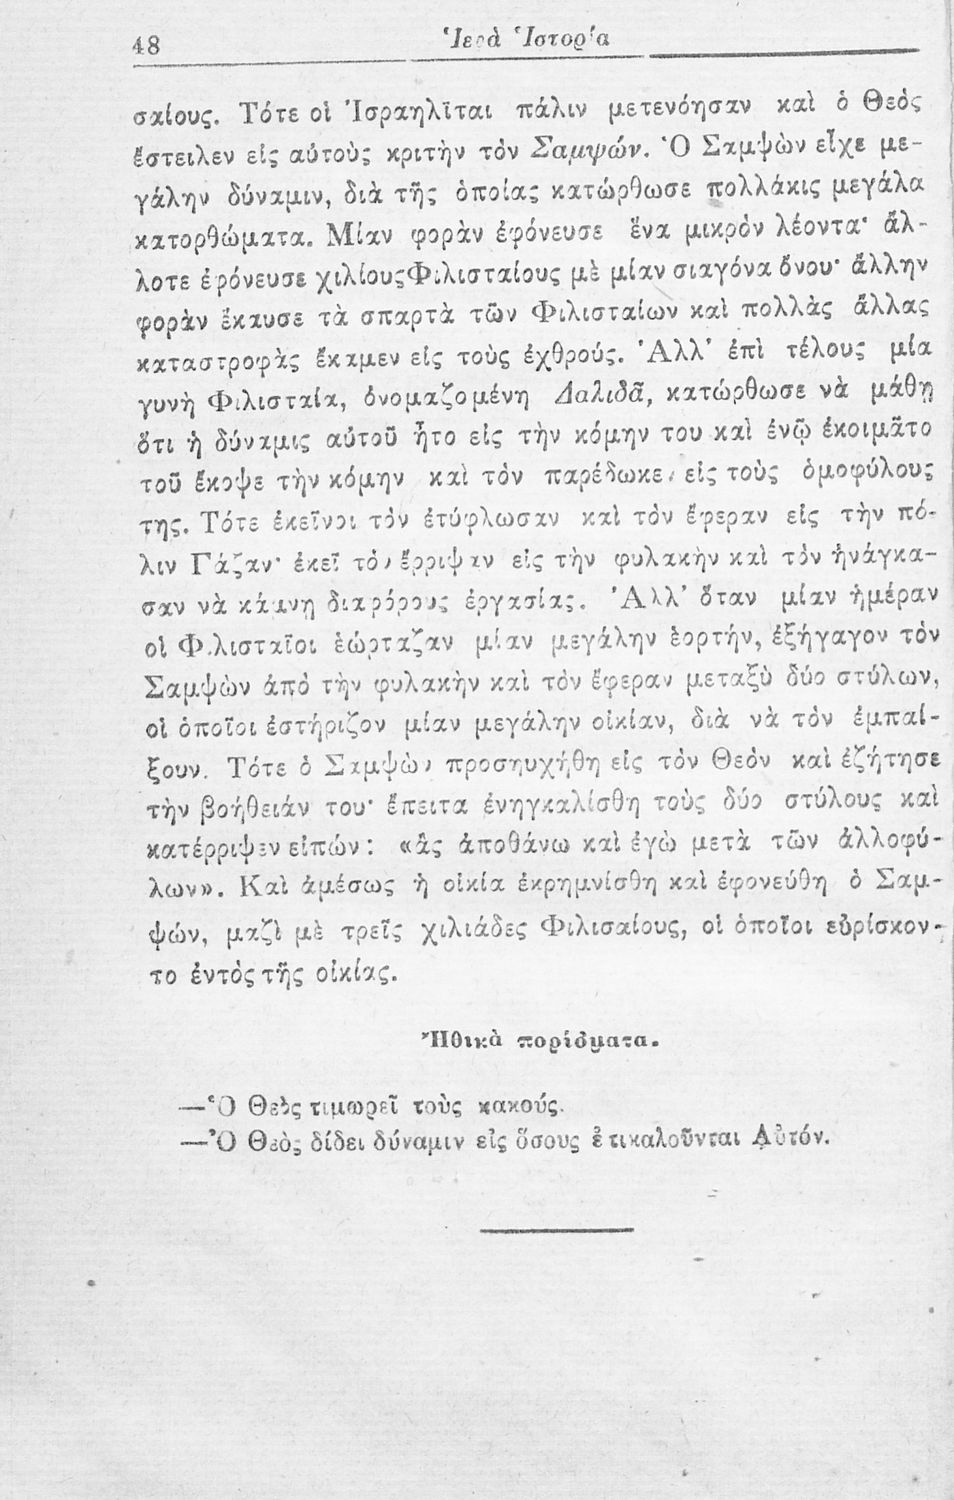 48
Ἱερὰ Ἱστορία
σαίους. Τότε οἱ Ἰσραηλῖται πάλιν μετενόησαν καὶ ὁ Θεὸς
ἔστειλεν εἰς αὐτοὺς κριτὴν τὸν Σαμψών. Ὁ Σαμψὼν εἶχε με-
γάλην δύναμιν, διὰ τῆς ὁποίας κατώρθωσε πολλάκις μεγάλα
κατορθώματα. Μίαν φορὰν ἐφόνευσε ἕνα μικρὸν λέοντα· ἄλ-
λοτε ἐφόνευσε χιλίους Φιλισταίους μὲ μίαν σιαγόνα ὄνου· ἄλλην
φορὰν ἔκαυσε τὰ σπαρτὰ τῶν Φιλισταίων καὶ πολλὰς ἄλλας
καταστροφὰς ἔκαμεν εἰς τοὺς ἐχθρούς. Ἀλλ' ἐπὶ τέλους μία
γυνὴ Φιλισταία, ὀνομαζομένη Δαλιδᾶ, κατώρθωσε νὰ μάθῃ
ὅτι ἡ δύναμις αὐτοῦ ἦτο εἰς τὴν κόμην του καὶ ἐνῷ ἐκοιμᾶτο
τοῦ ἔκοψε τὴν κόμην καὶ τὸν παρέδωκε εἰς τοὺς ὁμοφύλους
της. Τότε ἐκεῖνοι τὸν ἐτύφλωσαν καὶ τὸν ἔφεραν εἰς τὴν πό-
λιν Γάζαν· ἐκεῖ τὸν ἔρριψαν εἰς τὴν φυλακὴν καὶ τὸν ἠνάγκα-
σαν νὰ κάμνῃ διαφόρους ἐργασίας. Ἀλλ' ὅταν μίαν ἡμέραν
οἱ Φιλισταῖοι ἑώρταζαν μίαν μεγάλην ἑορτήν, ἐξήγαγον τὸν
Σαμψὼν ἀπὸ τὴν φυλακὴν καὶ τὸν ἔφεραν μεταξὺ δύο στύλων,
οἱ ὁποῖοι ἐστήριζον μίαν μεγάλην οἰκίαν, διὰ νὰ τὸν ἐμπαί-
ξουν. Τότε ὁ Σαμψὼν προσηυχήθη εἰς τὸν Θεὸν καὶ ἐζήτησε
τὴν βοήθειάν του· ἔπειτα ἐνηγκαλίσθη τοὺς δύο στύλους καὶ
κατέρριψεν εἰπών: «ἂς ἀποθάνω καὶ ἐγὼ μετὰ τῶν ἀλλοφύ-
λων». Καὶ ἀμέσως ἡ οἰκία ἐκρημνίσθη καὶ ἐφονεύθη ὁ Σαμ-
ψών, μαζὶ μὲ τρεῖς χιλιάδες Φιλισαίους, οἱ ὁποῖοι εὑρίσκον-
το ἐντὸς τῆς οἰκίας.
Ἠθικὰ πορίσματα.
—Ὁ Θεὸς τιμωρεῖ τοὺς κακούς.
—Ὁ Θεὸς δίδει δύναμιν εἰς ὅσους ἐπικαλοῦνται Αὐτόν.